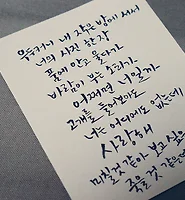 우두커니 내 작은 방에 서서
너의 사진 한 장
품에 안고 울다가
바람이 부는 소리가
어쩌면 너일까
고개를 들어보아도
너는 어디에도 없는데
사랑해
미칠 것 같아 보고 싶어
죽을 것 같은데